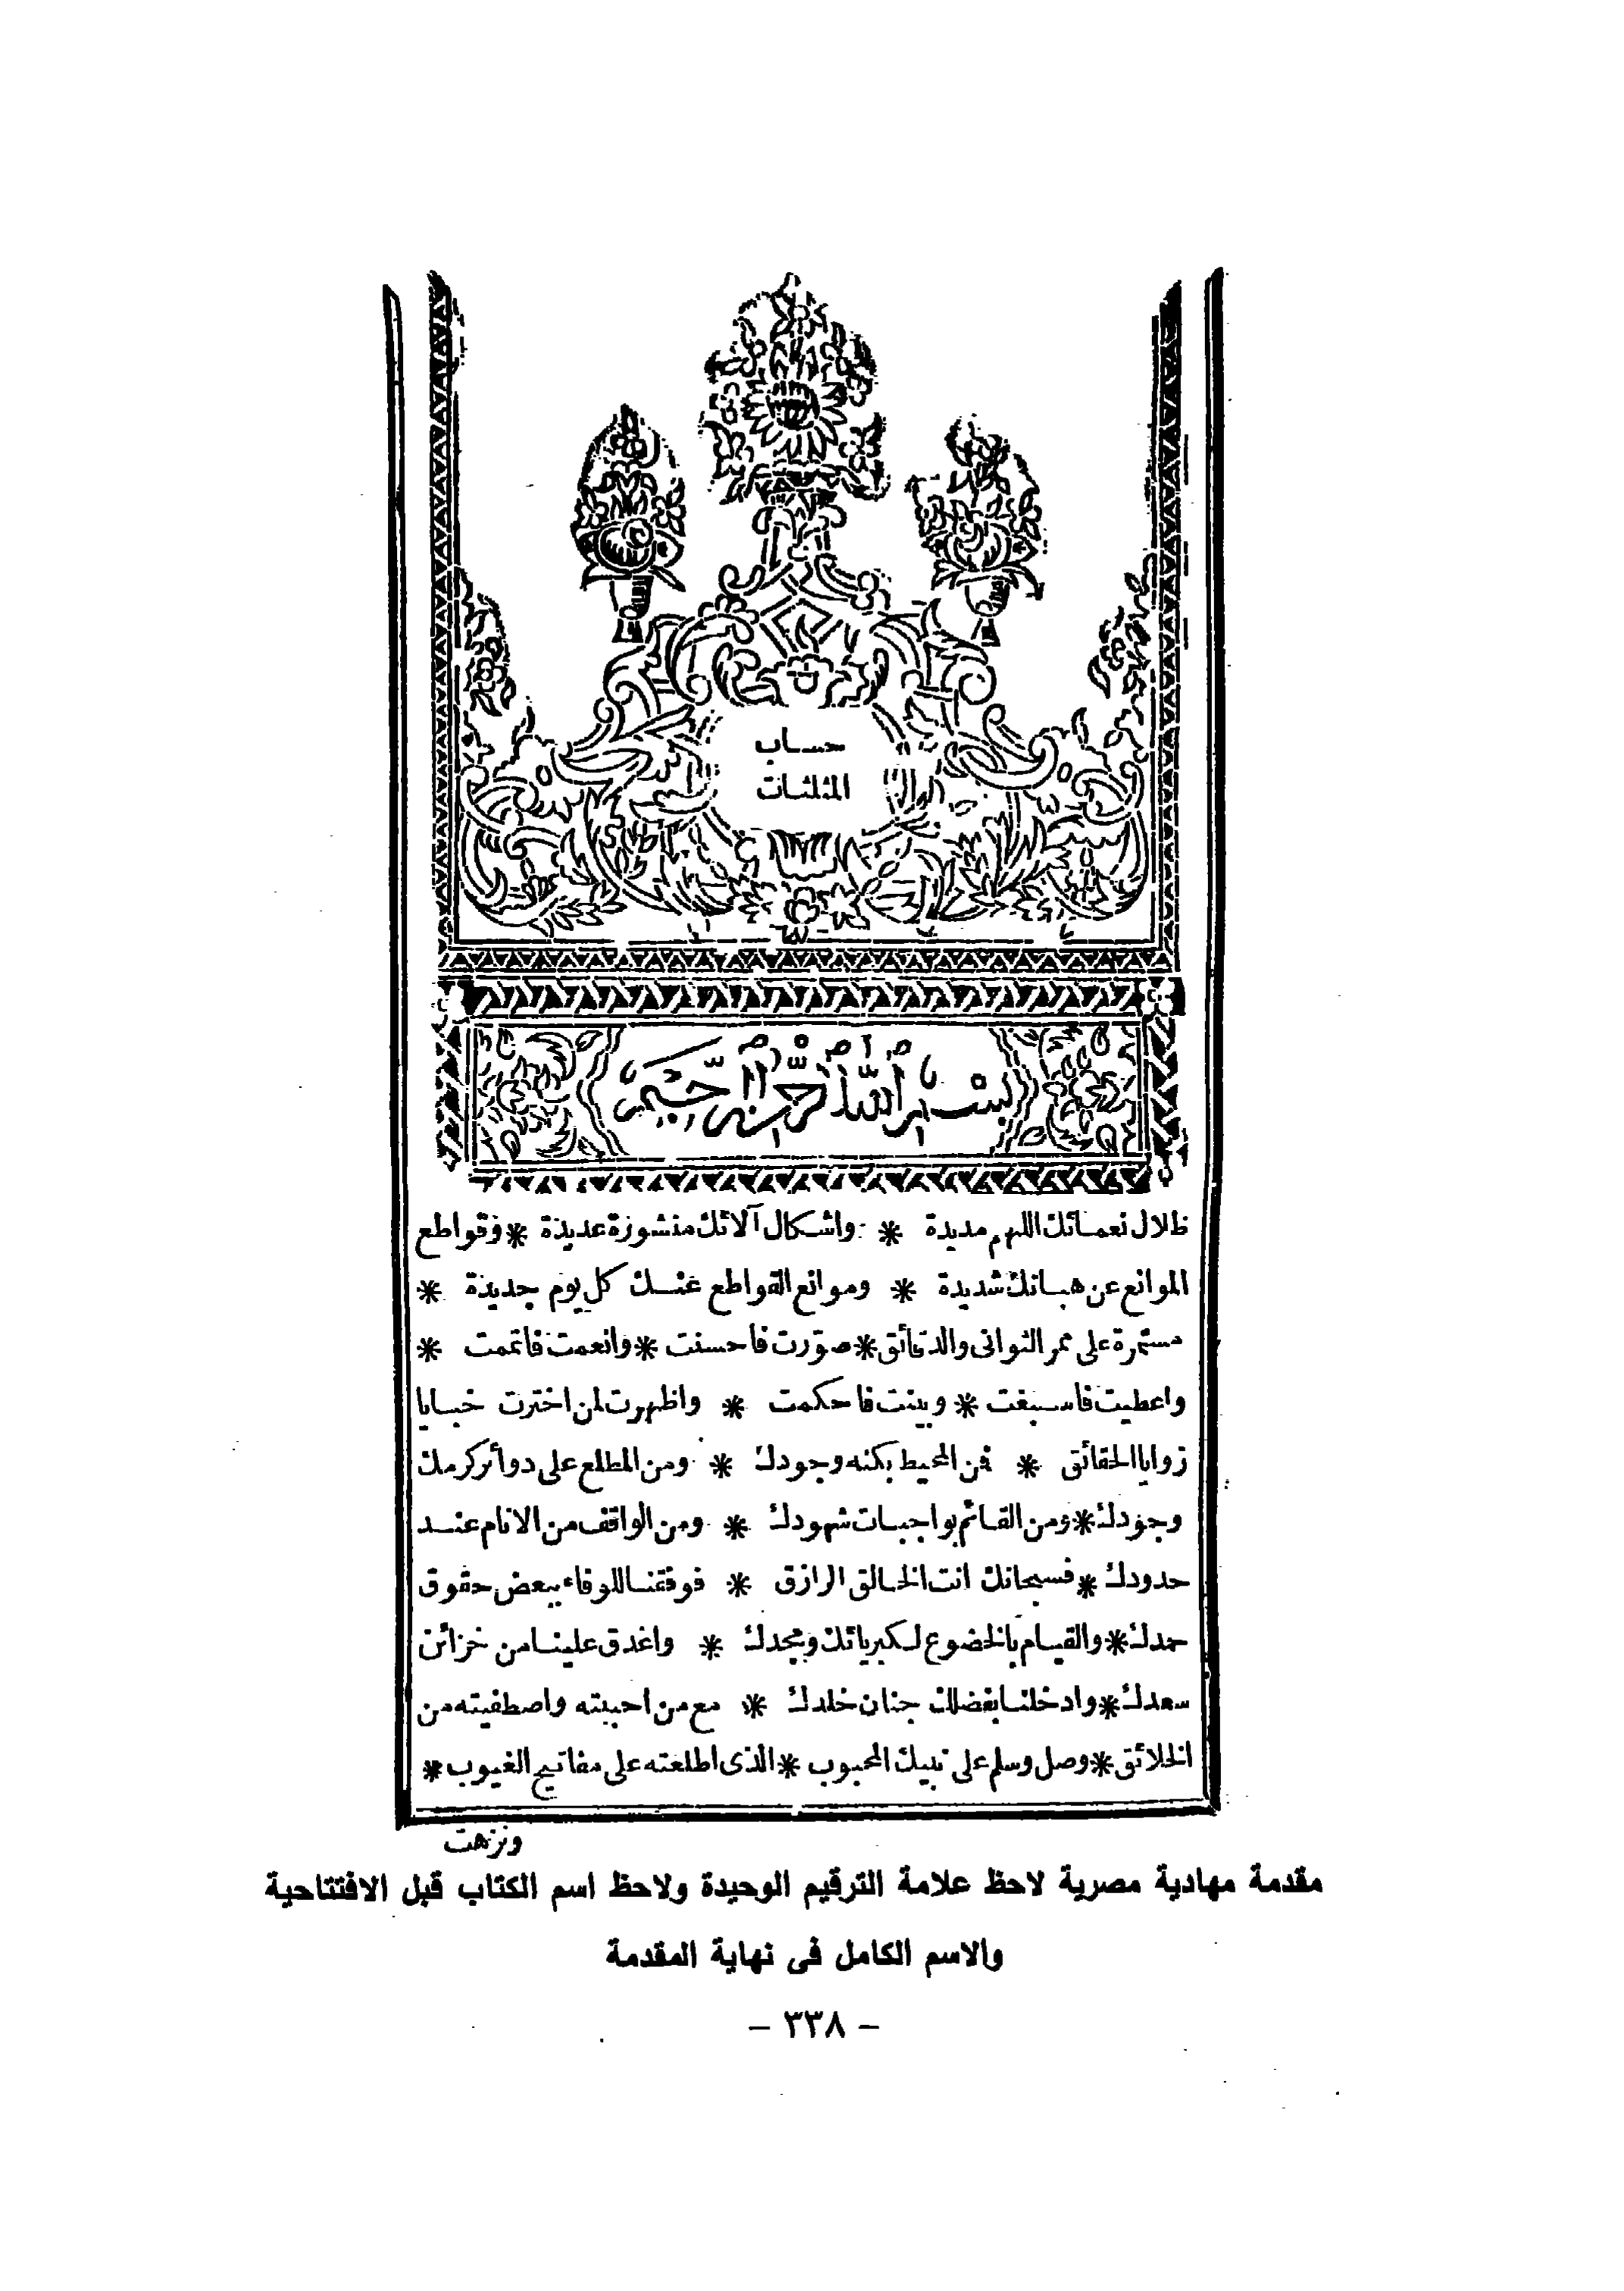 حساب
المثلثات
بسم الله الرحمن الرحيم
ظلال نعمائك اللهم مديدة * واشكال آلائك منشورة عديدة * وقواطع
الموانع عن هباتك شديدة * وموانع القواطع عنك كل يوم جديدة *
مستمرة على ممر الثوانى والدقائق * صورت فاحسنت * وانعمت فاتممت *
واعطيت فاسبغت * وبينت فاحكمت * واظهرت لمن اخترت خبايا
زوايا الحقائق * فمن المحيط بكنه وجودك * ومن المطلع على دوائر كرمك
وجودك * ومن القائم بواجبات شهودك * ومن الواقف من الانام عند
حدودك * فسبحانك انت الخالق الرازق * فوفقنا للوفاء ببعض حقوق
حمدك * والقيام بالخضوع لكبريائك ومجدك * واغدق علينا من خزائن
سعدك * وادخلنا بفضلك جنان خلدك * مع من احببته واصطفيته من
الخلائق * وصل وسلم على نبيك المحبوب * الذى اطلعته على مفاتيح الغيوب *
ونزهت
مقدمة مهادية مصرية لاحظ علامة الترقيم الوحيدة ولاحظ اسم الكتاب قبل الافتتاحية
والاسم الكامل فى نهاية المقدمة
– ٣٣٨ –